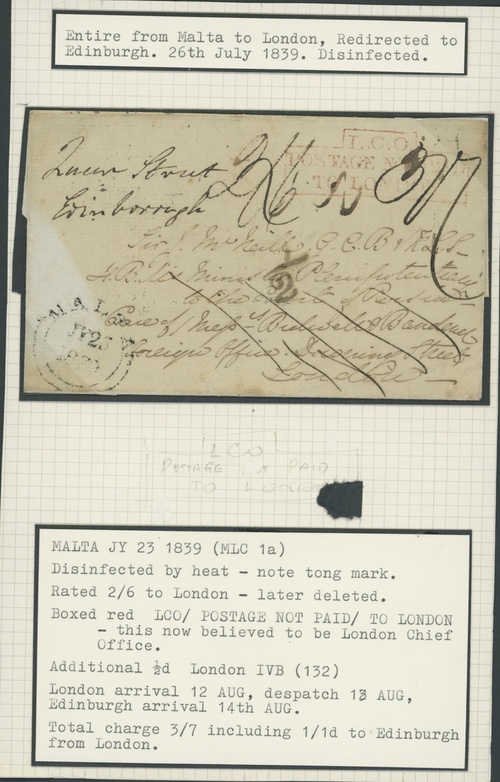 Entire from Malta to London, Redirected to
Edinburgh. 26th July 1839. Disinfected.
L.C.O
POSTAGE N
TO LON
Queen Street
Edinborough
2/6
3/7
Sir J. McNeill G.C.B & K.L.S-
H.B.Ms Minister Plenipotentiary
to the Court of Persia
Care of Messrs Bidwell &
Foreign Office Downing Street
London
MALTA
JY 23
1839
LCO
POSTAGE N PAID
TO LONDO
MALTA JY 23 1839 (MLC 1a)
Disinfected by heat - note tong mark.
Rated 2/6 to London - later deleted.
Boxed red LCO/ POSTAGE NOT PAID/ TO LONDON
- this now believed to be London Chief
Office.
Additional ½d London IVB (132)
London arrival 12 AUG, despatch 13 AUG,
Edinburgh arrival 14th AUG.
Total charge 3/7 including 1/1d to Edinburgh
from London.